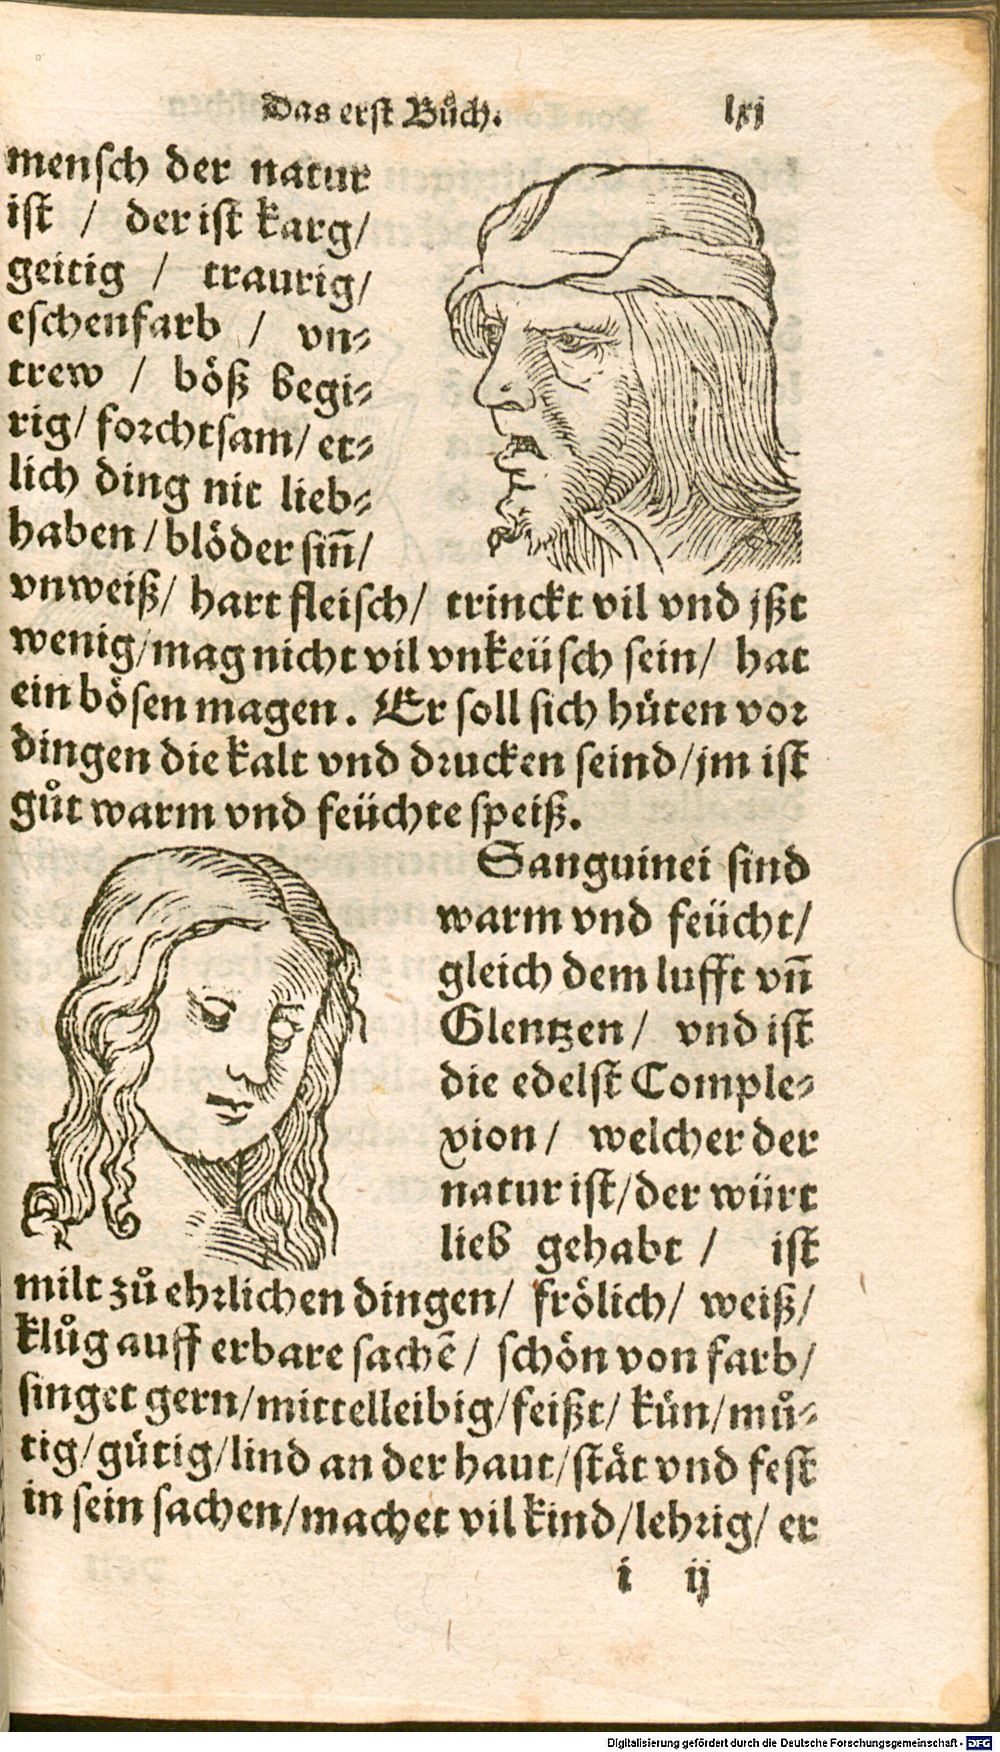 Das erst Bůch. lxj
mensch der natur
ist / der ist karg/
geitig / traurig/
eschenfarb / vn⸗
trew / böß begi⸗
rig/ forchtsam/ er⸗
lich ding nit lieb⸗
haben / blöder siñ/
vnweiß/ hart fleisch/ trinckt vil vnd jßt
wenig/mag nicht vil vnkeüsch sein/ hat
ein bösen magen. Er soll sich hüten vor
dingen die kalt vnd drucken seind/jm ist
gůt warm vnd feüchte speiß.
Sanguinei sind
warm vnd feücht/
gleich dem lufft vñ
Glentzen/ vnd ist
die edelst Comple⸗
xion/ welcher der
natur ist/der würt
lieb gehabt / ist
milt zů ehrlichen dingen/ frölich/ weiß/
klůg auff erbare sachē/ schön von farb/
singet gern/mittelleibig/feißt/ kün/můͤ⸗
tig/gütig/lind an der haut/stät vnd fest
in sein sachen/machet vil kind/lehrig/ er
i ij
Digitalisierung gefördert durch die Deutsche Forschungsgemeinschaft - DFG